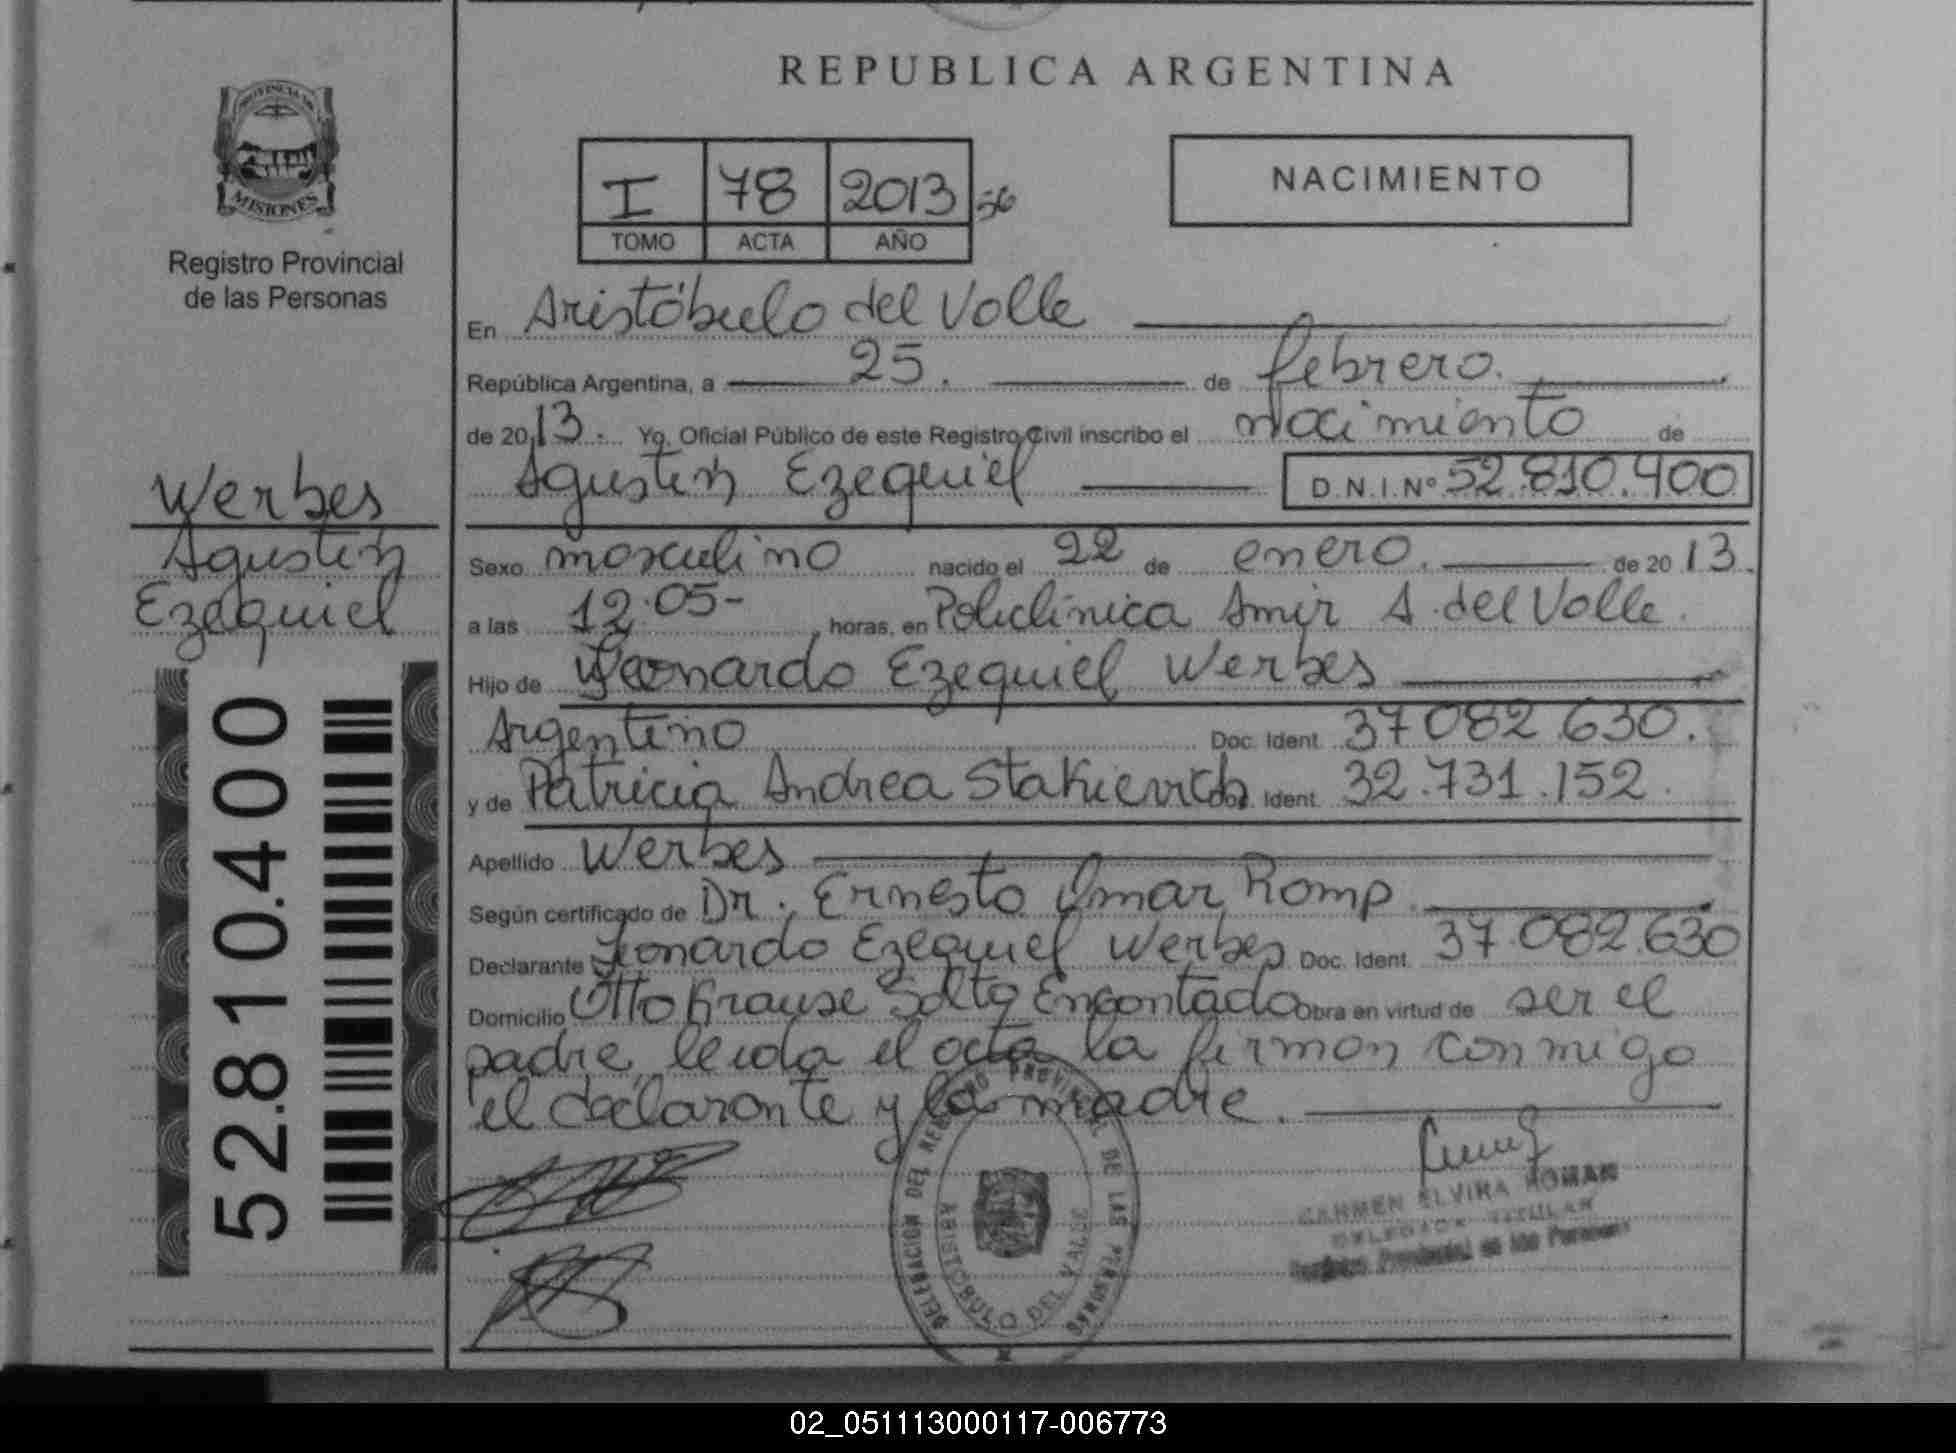 REPUBLICA ARGENTINA
PROVINCIA DE
MISIONES
Registro Provincial
de las Personas
I 78 2013 56
TOMO ACTA AÑO
NACIMIENTO
En Aristóbulo del Valle
República Argentina, a 25. de febrero.
de 2013. Yo, Oficial Público de este Registro Civil inscribo el nacimiento de
Agustin Ezequiel D.N.I.Nº 52.810.400
Werbes
Agustin
Ezequiel
52.810.400
Sexo masculino nacido el 22 de enero. de 2013.
a las 12.05- horas, en Policlínica Amir A. del Valle.
Hijo de Leonardo Ezequiel Werbes
Argentino Doc. Ident. 37 082 630.
y de Patricia Andrea Stakievich Doc. Ident. 32.731.152.
Apellido Werbes
Según certificado de Dr. Ernesto Omar Romp.
Declarante Leonardo Ezequiel Werbes Doc. Ident. 37.082.630
Domicilio Otto Krause Salto Encantado Obra en virtud de ser el
padre, leida el acta la firman conmigo
el declarante y la madre.
DELEGACION DEL REGISTRO PROVINCIAL DE LAS PERSONAS
ARISTOBULO DEL VALLE
CARMEN ELVIRA ROMAN
DELEGADA TITULAR
Registro Provincial de las Personas
02_051113000117-006773